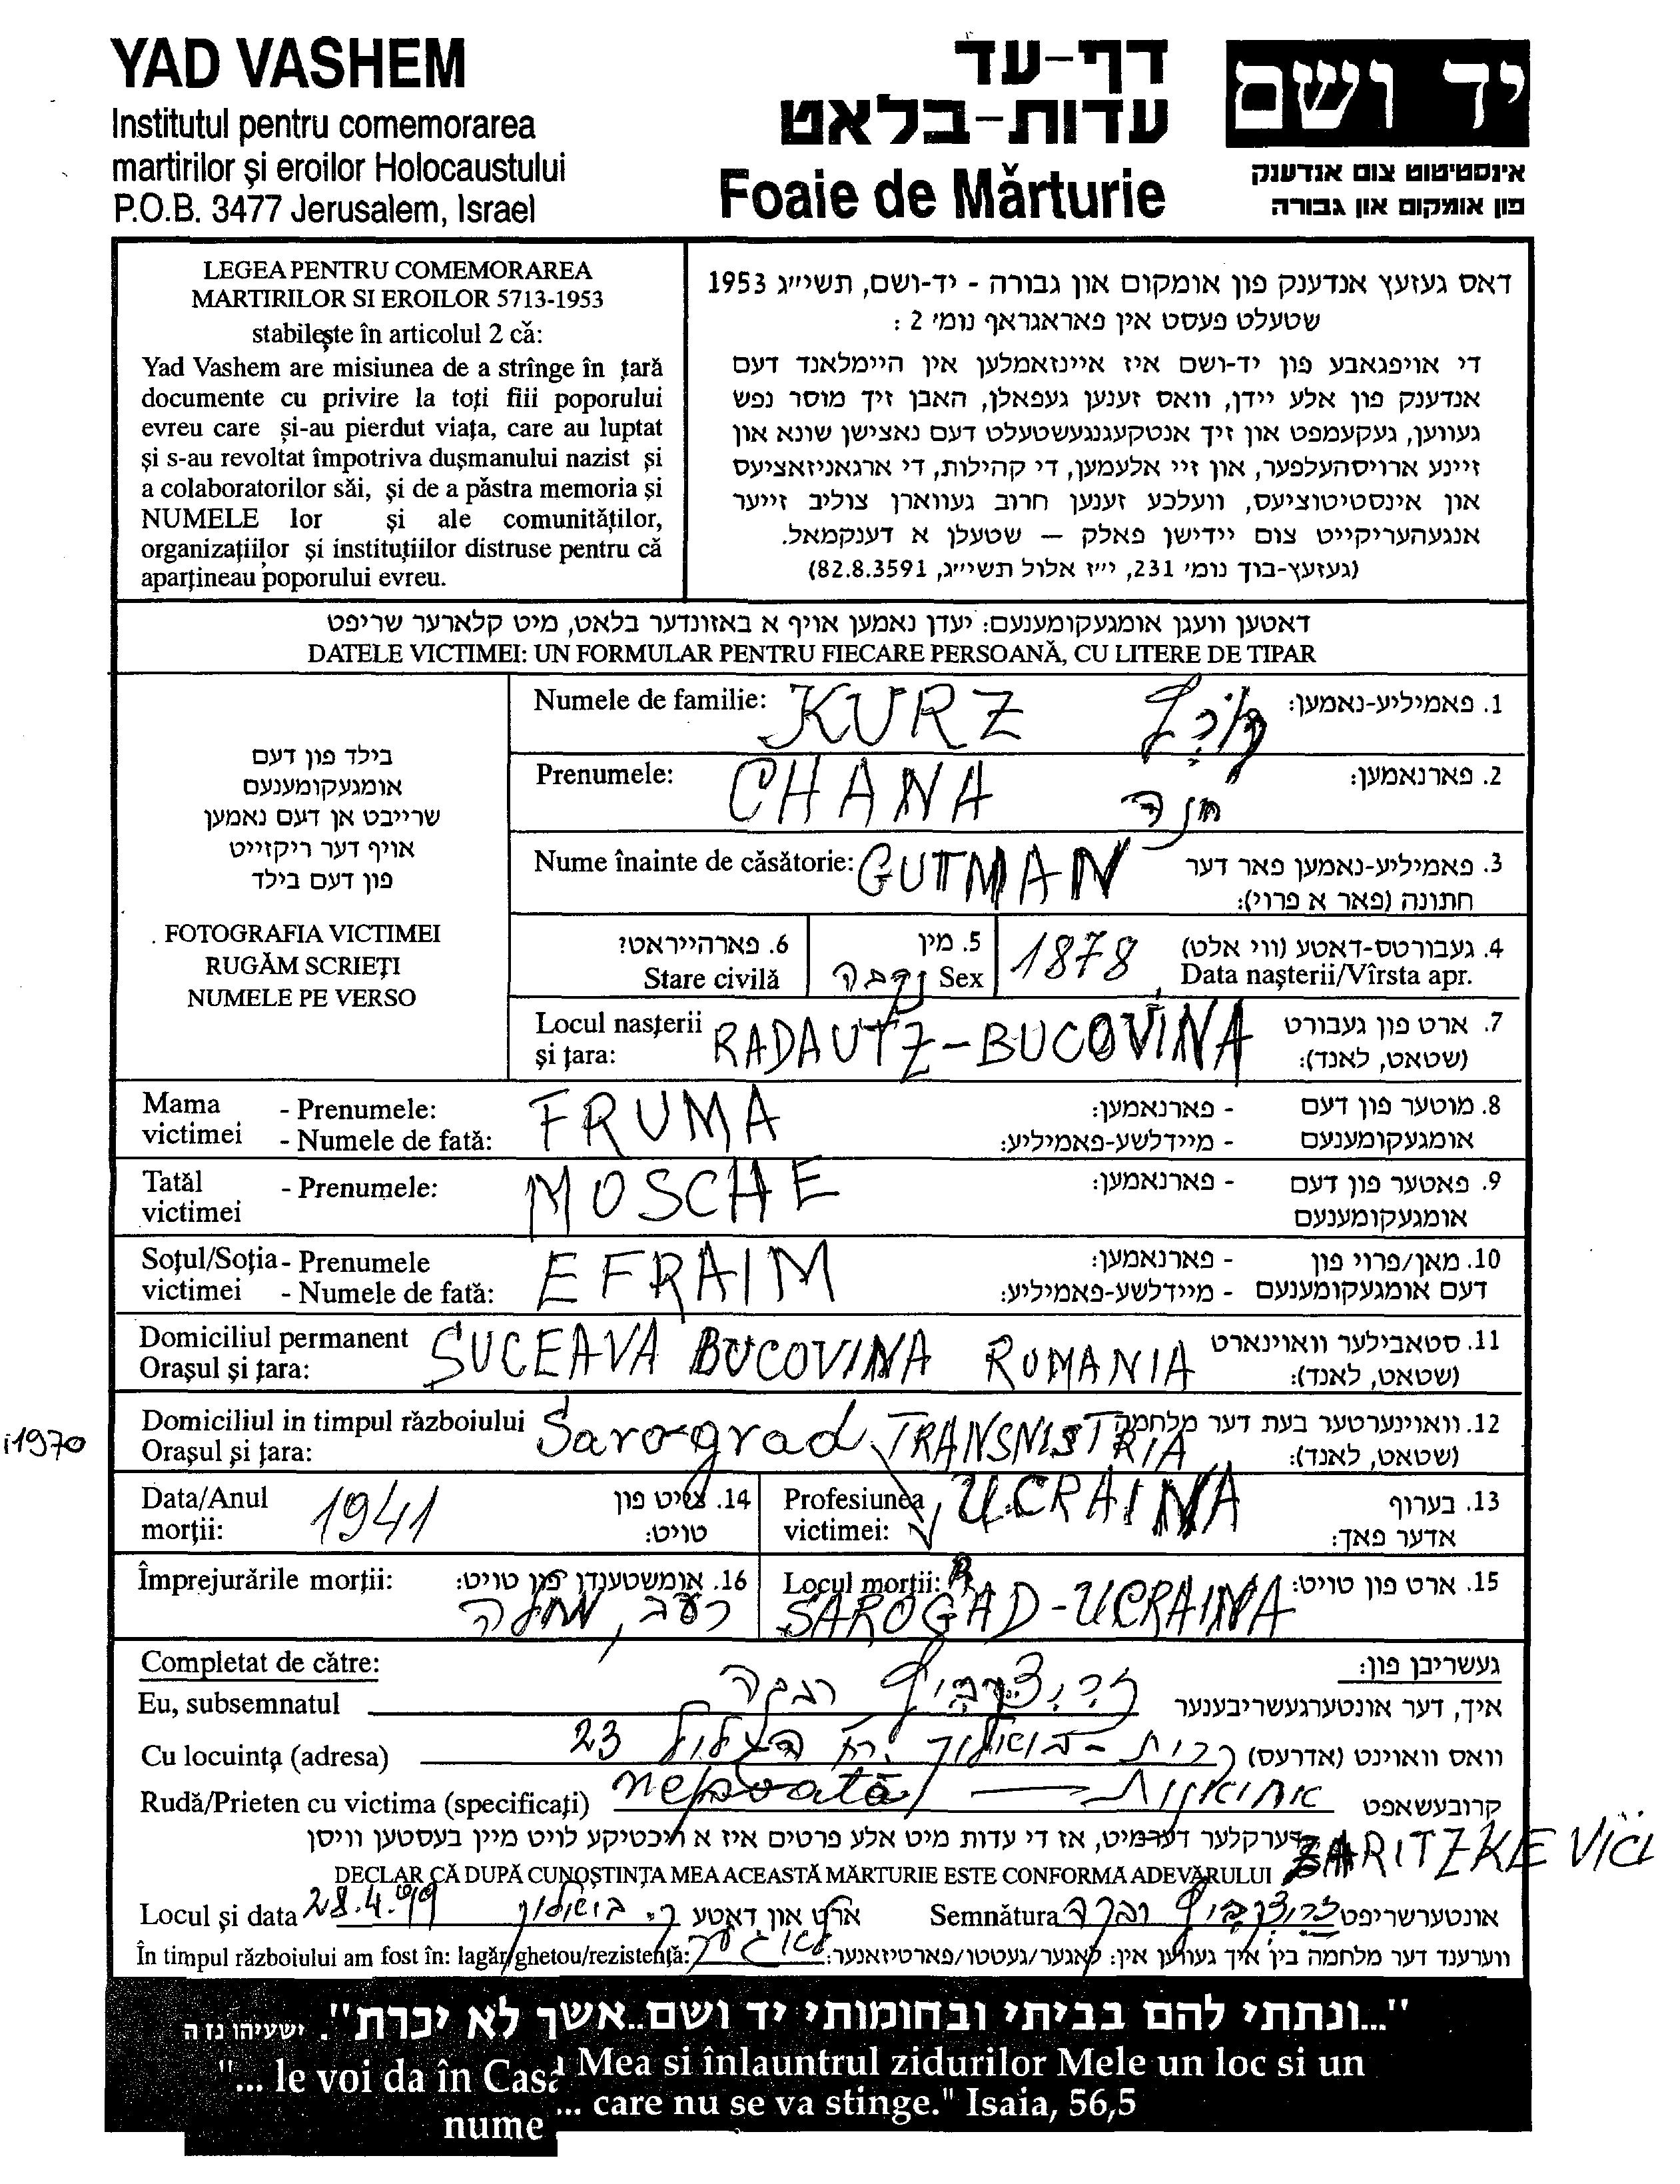 YAD VASHEM
Institutul pentru comemorarea
martirilor și eroilor Holocaustului
P.O.B. 3477 Jerusalem, Israel
דף-עד
עדות-בלאט
Foaie de Mărturie
יד ושם
אינסטיטוט צום אנדענק
פון אומקום און גבורה
LEGEA PENTRU COMEMORAREA
MARTIRILOR SI EROILOR 5713-1953
stabilește în articolul 2 că:
Yad Vashem are misiunea de a strînge în țară
documente cu privire la toți fiii poporului
evreu care și-au pierdut viața, care au luptat
și s-au revoltat împotriva dușmanului nazist și
a colaboratorilor săi, și de a păstra memoria și
NUMELE lor și ale comunităților,
organizațiilor și instituțiilor distruse pentru că
aparțineau poporului evreu.
דאס געזעץ אנדענק פון אומקום און גבורה - יד-ושם, תשי״ג 1953
שטעלט פעסט אין פאראגראף נומ׳ 2 :
די אויפגאבע פון יד-ושם איז איינזאמלען אין היימלאנד דעם
אנדענק פון אלע יידן, וואס זענען געפאלן, האבן זיך מוסר נפש
געווען, געקעמפט און זיך אנטקעגנגעשטעלט דעם נאצישן שונא און
זיינע ארויסהעלפער, און זיי אלעמען, די קהילות, די ארגאניזאציעס
און אינסטיטוציעס, וועלכע זענען חרוב געווארן צוליב זייער
אנגעהעריקייט צום יידישן פאלק — שטעלן א דענקמאל.
(געזעץ-בוך נומ׳ 231, י״ז אלול תשי״ג, 82.8.3591)
דאטען וועגן אומגעקומענעם: יעדן נאמען אויף א באזונדער בלאט, מיט קלארער שריפט
DATELE VICTIMEI: UN FORMULAR PENTRU FIECARE PERSOANĂ, CU LITERE DE TIPAR
בילד פון דעם
אומגעקומענעם
שרייבט אן דעם נאמען
אויף דער ריקזייט
פון דעם בילד
FOTOGRAFIA VICTIMEI
RUGĂM SCRIEȚI
NUMELE PE VERSO
Numele de familie: KURZ קורץ 1. פאמיליע-נאמען:
Prenumele: CHANA חנה 2. פארנאמען:
Nume înainte de căsătorie: GUTMAN 3. פאמיליע-נאמען פאר דער
חתונה (פאר א פרוי):
6. פארהייראט? 5. מין 1878 4. געבורטס-דאטע (ווי אלט)
Stare civilă נקבה Sex Data nașterii/Vîrsta apr.
Locul nașterii RADAUTZ-BUCOVINA 7. ארט פון געבורט
și țara: (שטאט, לאנד):
Mama - Prenumele: FRUMA - פארנאמען: 8. מוטער פון דעם
victimei - Numele de fată: - מיידלשע-פאמיליע: אומגעקומענעם
Tatăl - Prenumele: MOSCHE - פארנאמען: 9. פאטער פון דעם
victimei אומגעקומענעם
Soțul/Soția - Prenumele EFRAIM - פארנאמען: 10. מאן/פרוי פון
victimei - Numele de fată: - מיידלשע-פאמיליע: דעם אומגעקומענעם
Domiciliul permanent SUCEAVA BUCOVINA ROMANIA 11. סטאבילער וואוינארט
Orașul și țara: (שטאט, לאנד):
Domiciliul in timpul războiului Sarograd TRANSNISTRIA 12. וואוינערטער בעת דער מלחמה
i1970 Orașul și țara: (שטאט, לאנד):
Data/Anul 1941 14. צייט פון Profesiunea UCRAINA 13. בערוף
morții: טויט: victimei: אדער פאך:
Împrejurările morții: 16. אומשטענדן פון טויט: Locul morții: 15. ארט פון טויט:
רעב, מחלה SAROGRAD-UCRAINA
Completat de către: געשריבן פון:
Eu, subsemnatul רבקה איך, דער אונטערגעשריבענער
Cu locuința (adresa) 23 וואס וואוינט (אדרעס)
Rudă/Prieten cu victima (specificați) nepoată אחיאנית קרובעשאפט
דערקלער דערמיט, אז די עדות מיט אלע פרטים איז א ריכטיקע לויט מיין בעסטען וויסן
DECLAR CĂ DUPĂ CUNOȘTINȚA MEA ACEASTĂ MĂRTURIE ESTE CONFORMĂ ADEVĂRULUI ZARITZKEVICI
Locul și data 28.4.99 ק. ביאליק ארט און דאטע Semnătura רבקה אונטערשריפט
În timpul războiului am fost în: lagăr/ghetou/rezistență: לאגער ווערענד דער מלחמה בין איך געווען אין: לאגער/געטטו/פארטיזאנער:
"...ונתתי להם בביתי ובחומותי יד ושם..אשר לא יכרת". ישעיהו נו ה
"... le voi da în Casa Mea si înlauntrul zidurilor Mele un loc si un
nume ... care nu se va stinge." Isaia, 56,5